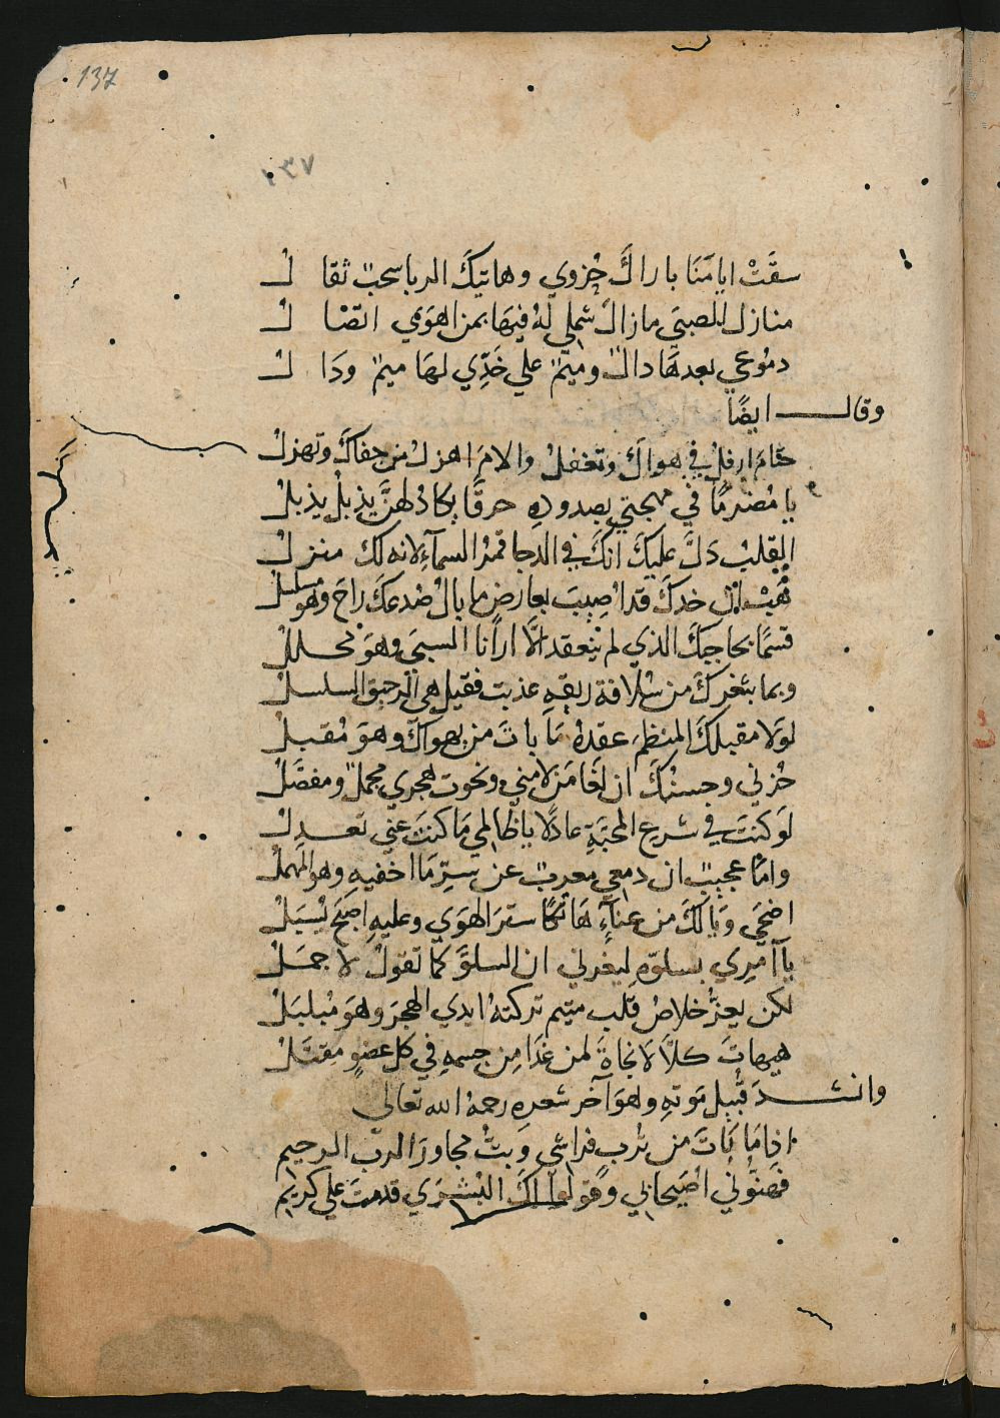 137
١٣٧
سقَتْ ايامَنَا باراكَ حُزوي وهاتيكَ الربا سحبٌ ثقالُ
منازل للصبَى مازالَ شملي لهُ فيهَا بمن اهوَي اتصالُ
دمُوعي بعدهَا دالٌ وميمٌ علي خَدِّي لهَا ميمٌ ودَالُ
وقال ايضًا
حتامَ ارفلُ في هواكَ وتغفلُ والامَ اهزلُ من جفاكَ وتهزلُ
يا مُضرمًا في مهجتي بصدودهِ حرقًا يكادُ لهنَّ يذبلُ يذبلُ
القلبُ دَلَّ عليكَ انكَ في الدجا قمرُ السماءِ لانه لك منزلُ
هَبْ ان خدكَ قد اصِيبَ بعارضٍ ما بالُ صُدعكَ راحَ وهوَ مسلسلُ
قسمًا بحاجبكَ الذي لم ينعقد الَّا ارانا السبيَ وهوَ محللُ
وبما بثغركَ من سُلافة ريقهِ عذبت فقيل هي الرحيق السلسلُ
لولا مقبلكَ المنظمُ عقدهُ مَا باتَ من يهواكَ وهوَ مُقبلُ
حُزني وحسنُكَ ان لغَا مَن لامني ونحوتَ هجري مجملٌ ومفصَّلُ
لو كنتَ في شرع المحبَّةِ عادلًا يا ظالمي مَا كنتَ عني تعدِلُ
وامَا عجبٌ ان دمعي معربٌ عن سترِ مَا اخفيهِ وهوَ المهملُ
اضحَي وَيا لكَ من عناءٍ هَاتكًا سترَ الهوَي وعليهِ اصبحَ يُسبَلُ
يا آمِري بسلوّهِ ليغرني ان السلوَّ كمَا تقولُ لاجمَلُ
لكن يعزُّ خلاصُ قلب متيم تركتهُ ايدي الهجرَ وهوَ مُبلبَلُ
هيهاتَ كلَّا لَا نجاةَ لمن غدَا مِن جسمهِ في كل عضوٍ مقتَلُ
وانشدَ قبيل مَوتهِ وهوَ آخر شعرهِ رحمهُ الله تعالي
اذا مَا بَاتَ من تُرب فراشي وَبتُّ مجاورَ الربّ الرحيم
فهنُّوني اصَيحابي وَقولوا لكَ البُشرَي قدمتَ علي كريم